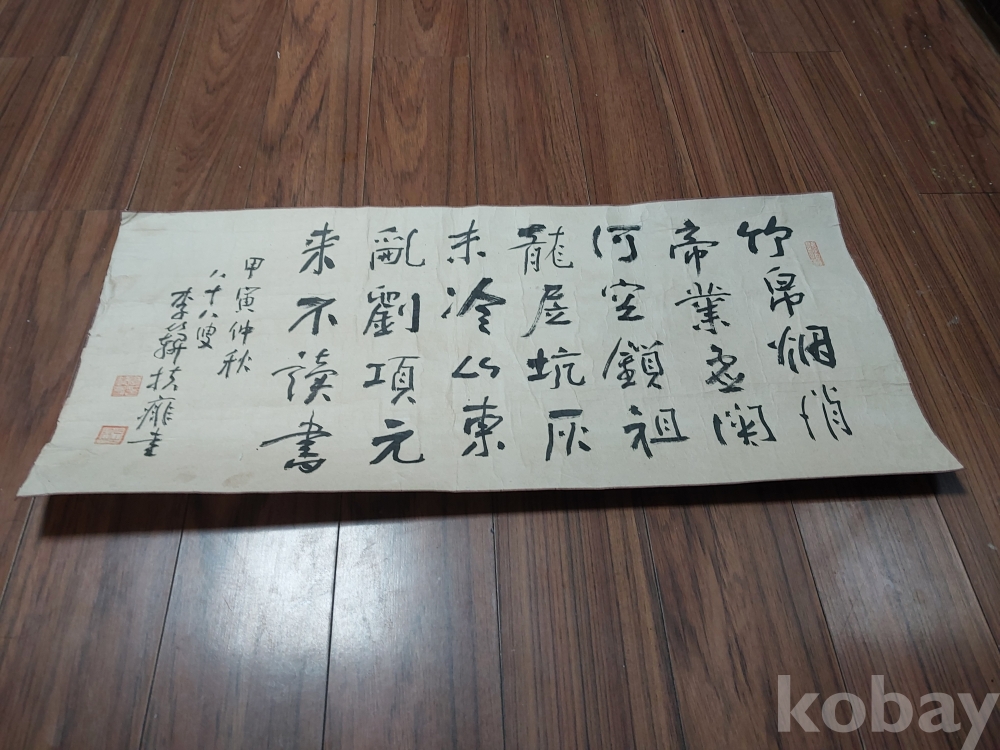 竹帛烟消
帝業虛関
河空鎖祖
龍居坑灰
未冷山東
亂劉項元
来不讀書
甲寅仲秋
八十八叟
李 扶 書
kobay